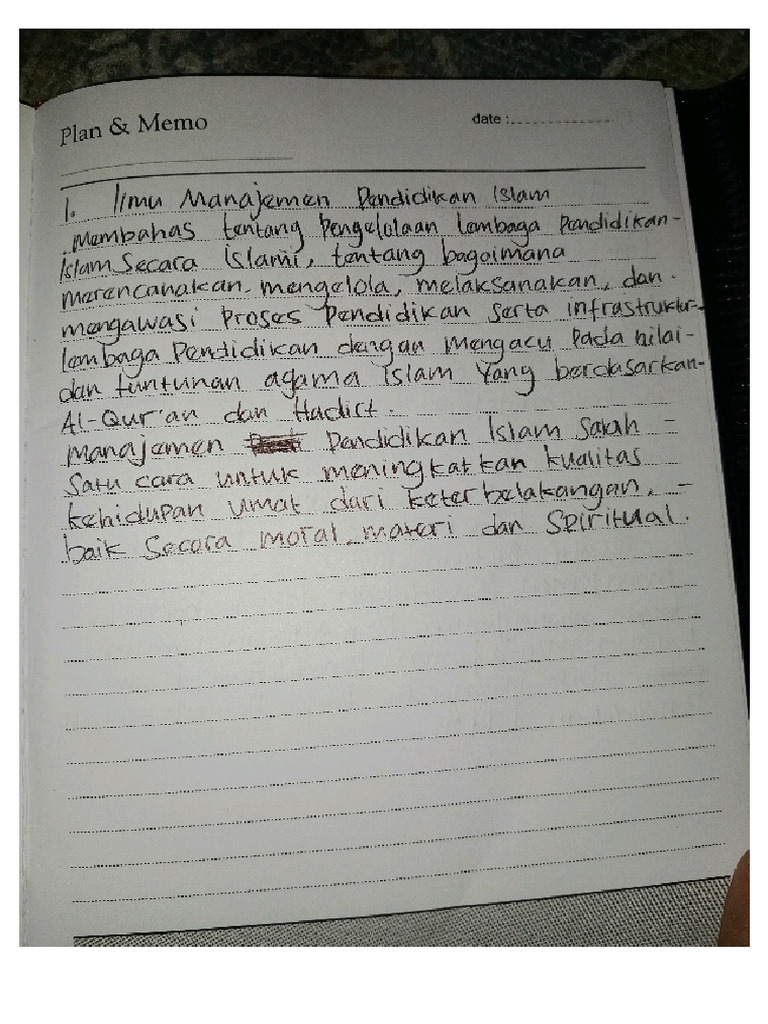 Plan & Memo
date :
1. Ilmu Manajemen Pendidikan Islam
Membahas tentang Pengelolaan Lembaga Pendidikan-
Islam Secara Islami, tentang bagaimana
merencanakan, mengelola, melaksanakan, dan
mengawasi Proses Pendidikan serta infrastruktur-
lembaga Pendidikan dengan mengacu pada nilai-
dan tuntunan agama Islam Yang berdasarkan-
Al-Qur'an dan Hadict.
manajemen Pendidikan Islam Salah -
Satu cara untuk meningkatkan kualitas
kehidupan umat dari keterbelakangan, -
baik Secara moral, materi dan Spiritual.